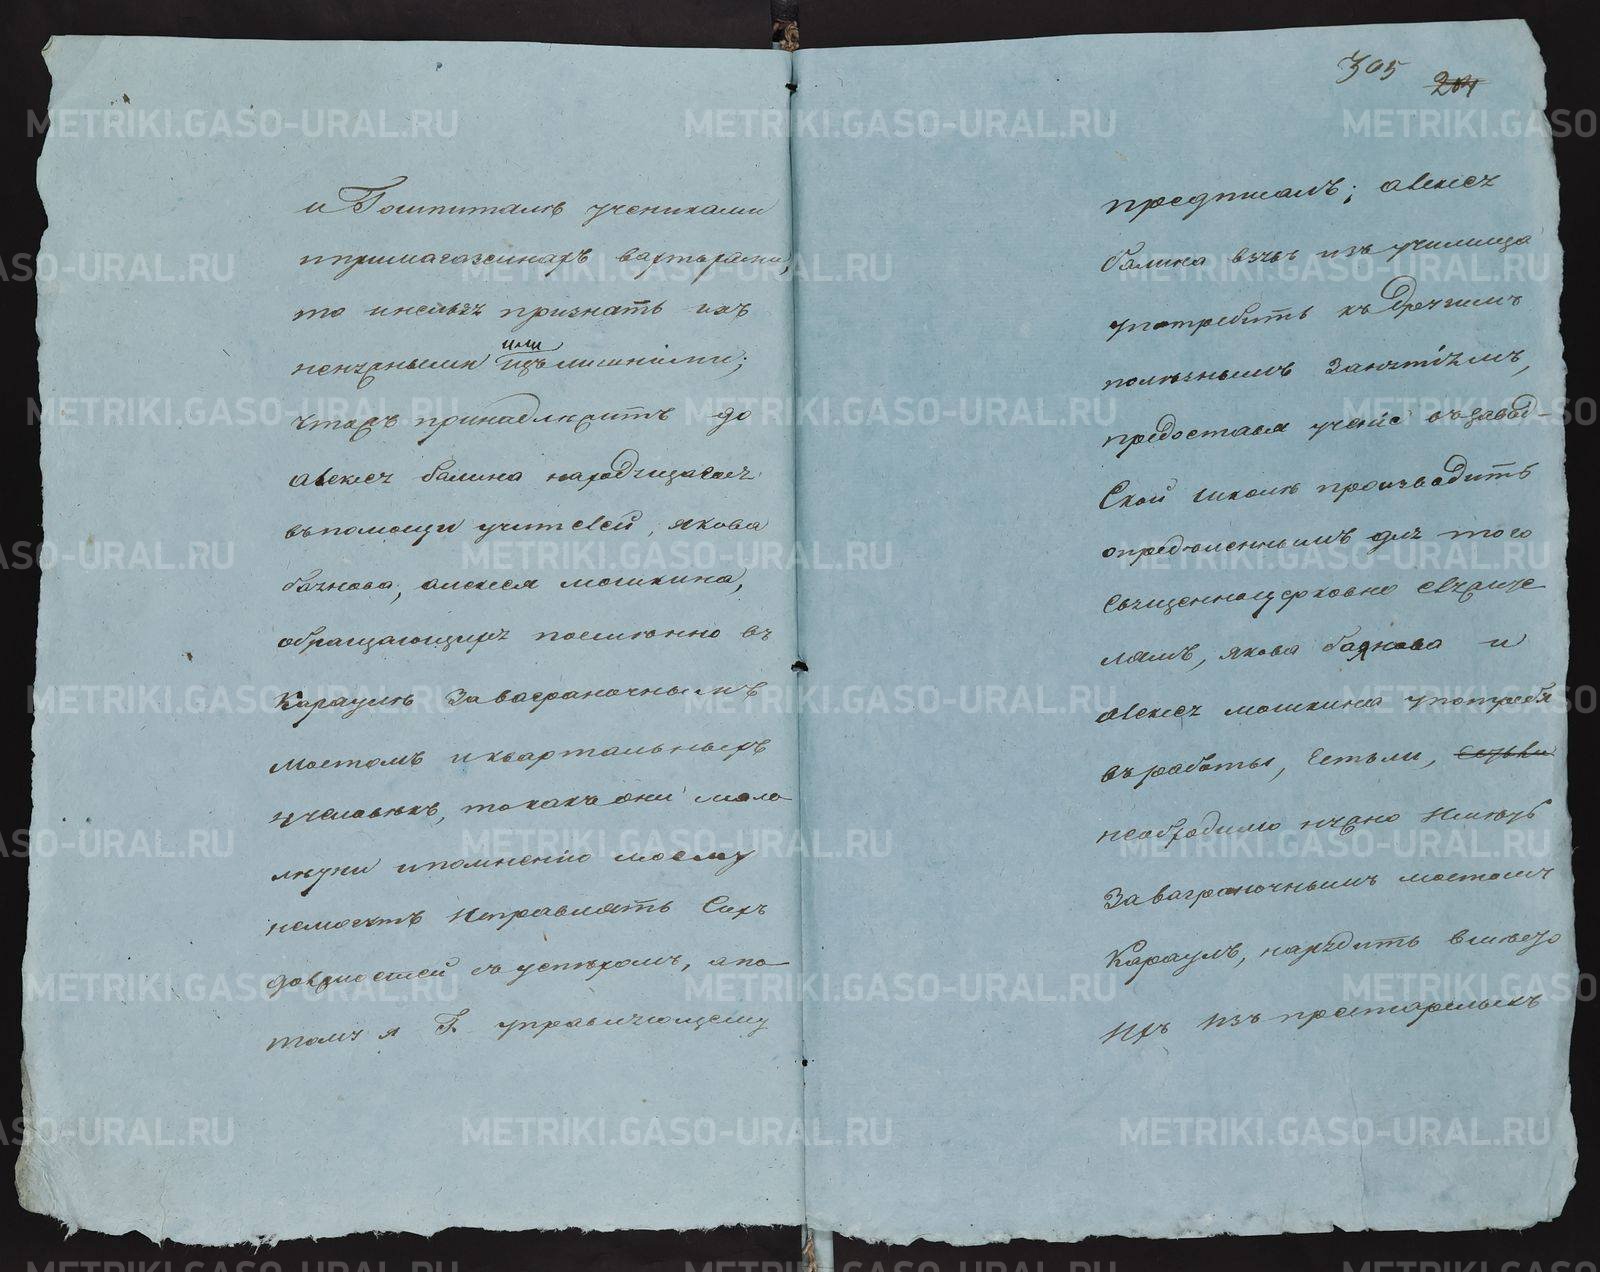 и Гошпиталѣ учениками
ипримагазинахъ вахтерами,
то инельзя признать ихъ
ненужными или излишними;
чтожъ принадлежитъ до
алексея балина находящагося
въпомощи учителей, якова
баянова, алексея мошкина,
обращающихся посменно въ
Карауле Заваграночнымъ
мостомъ иквартальныхъ
человекъ, токакъ они мало
нужни ипомнению моему
немогутъ Исправлять Сихъ
должностей съ успехомъ, апо
тому я Г. управляющему
305
201
предписалъ; алексея
балина взявъ изъ училища
употребить къ другимъ
полезнымъ Занятіямъ,
предоставя учение въ завод-
ской школе производить
определеннымъ для того
Священноцерковно служите
лямъ, якова баянова и
алексея мошкина употребя
въ работы, Естьли,
необходимо нужно Иметь
За ваграночнымъ мостомъ
Караулъ, нарядить вместо
Ихъ Изъ престарелыхъ
METRIKI.GASO-URAL.RU